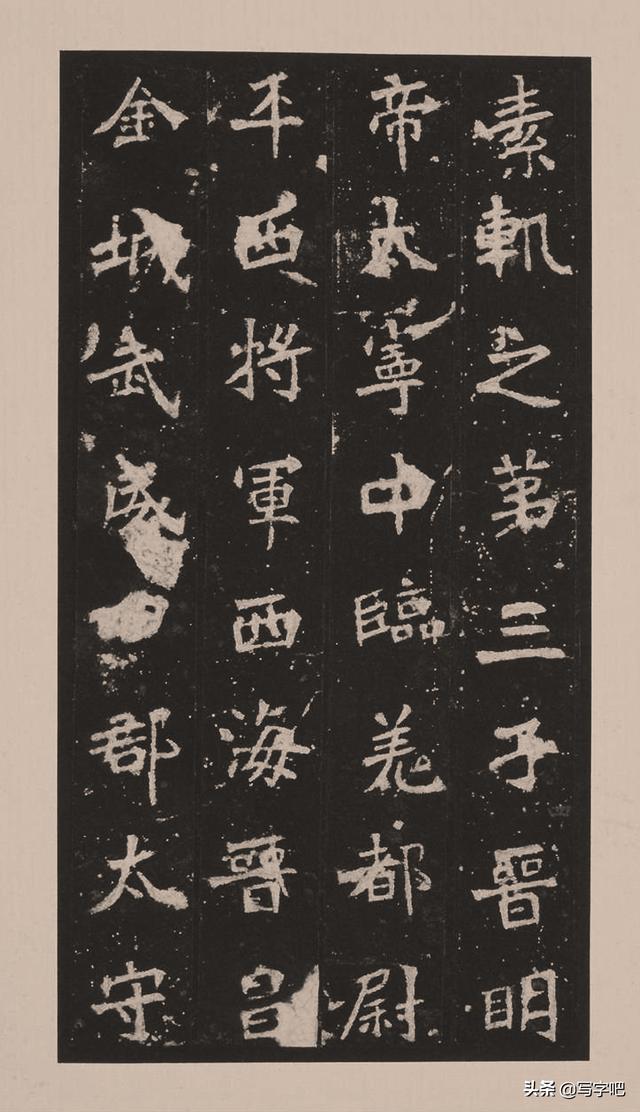 素軌之第三子晉明
帝太寧中臨羌都尉
平西將軍西海晉昌
金城武威郡太守
头条 @写字吧